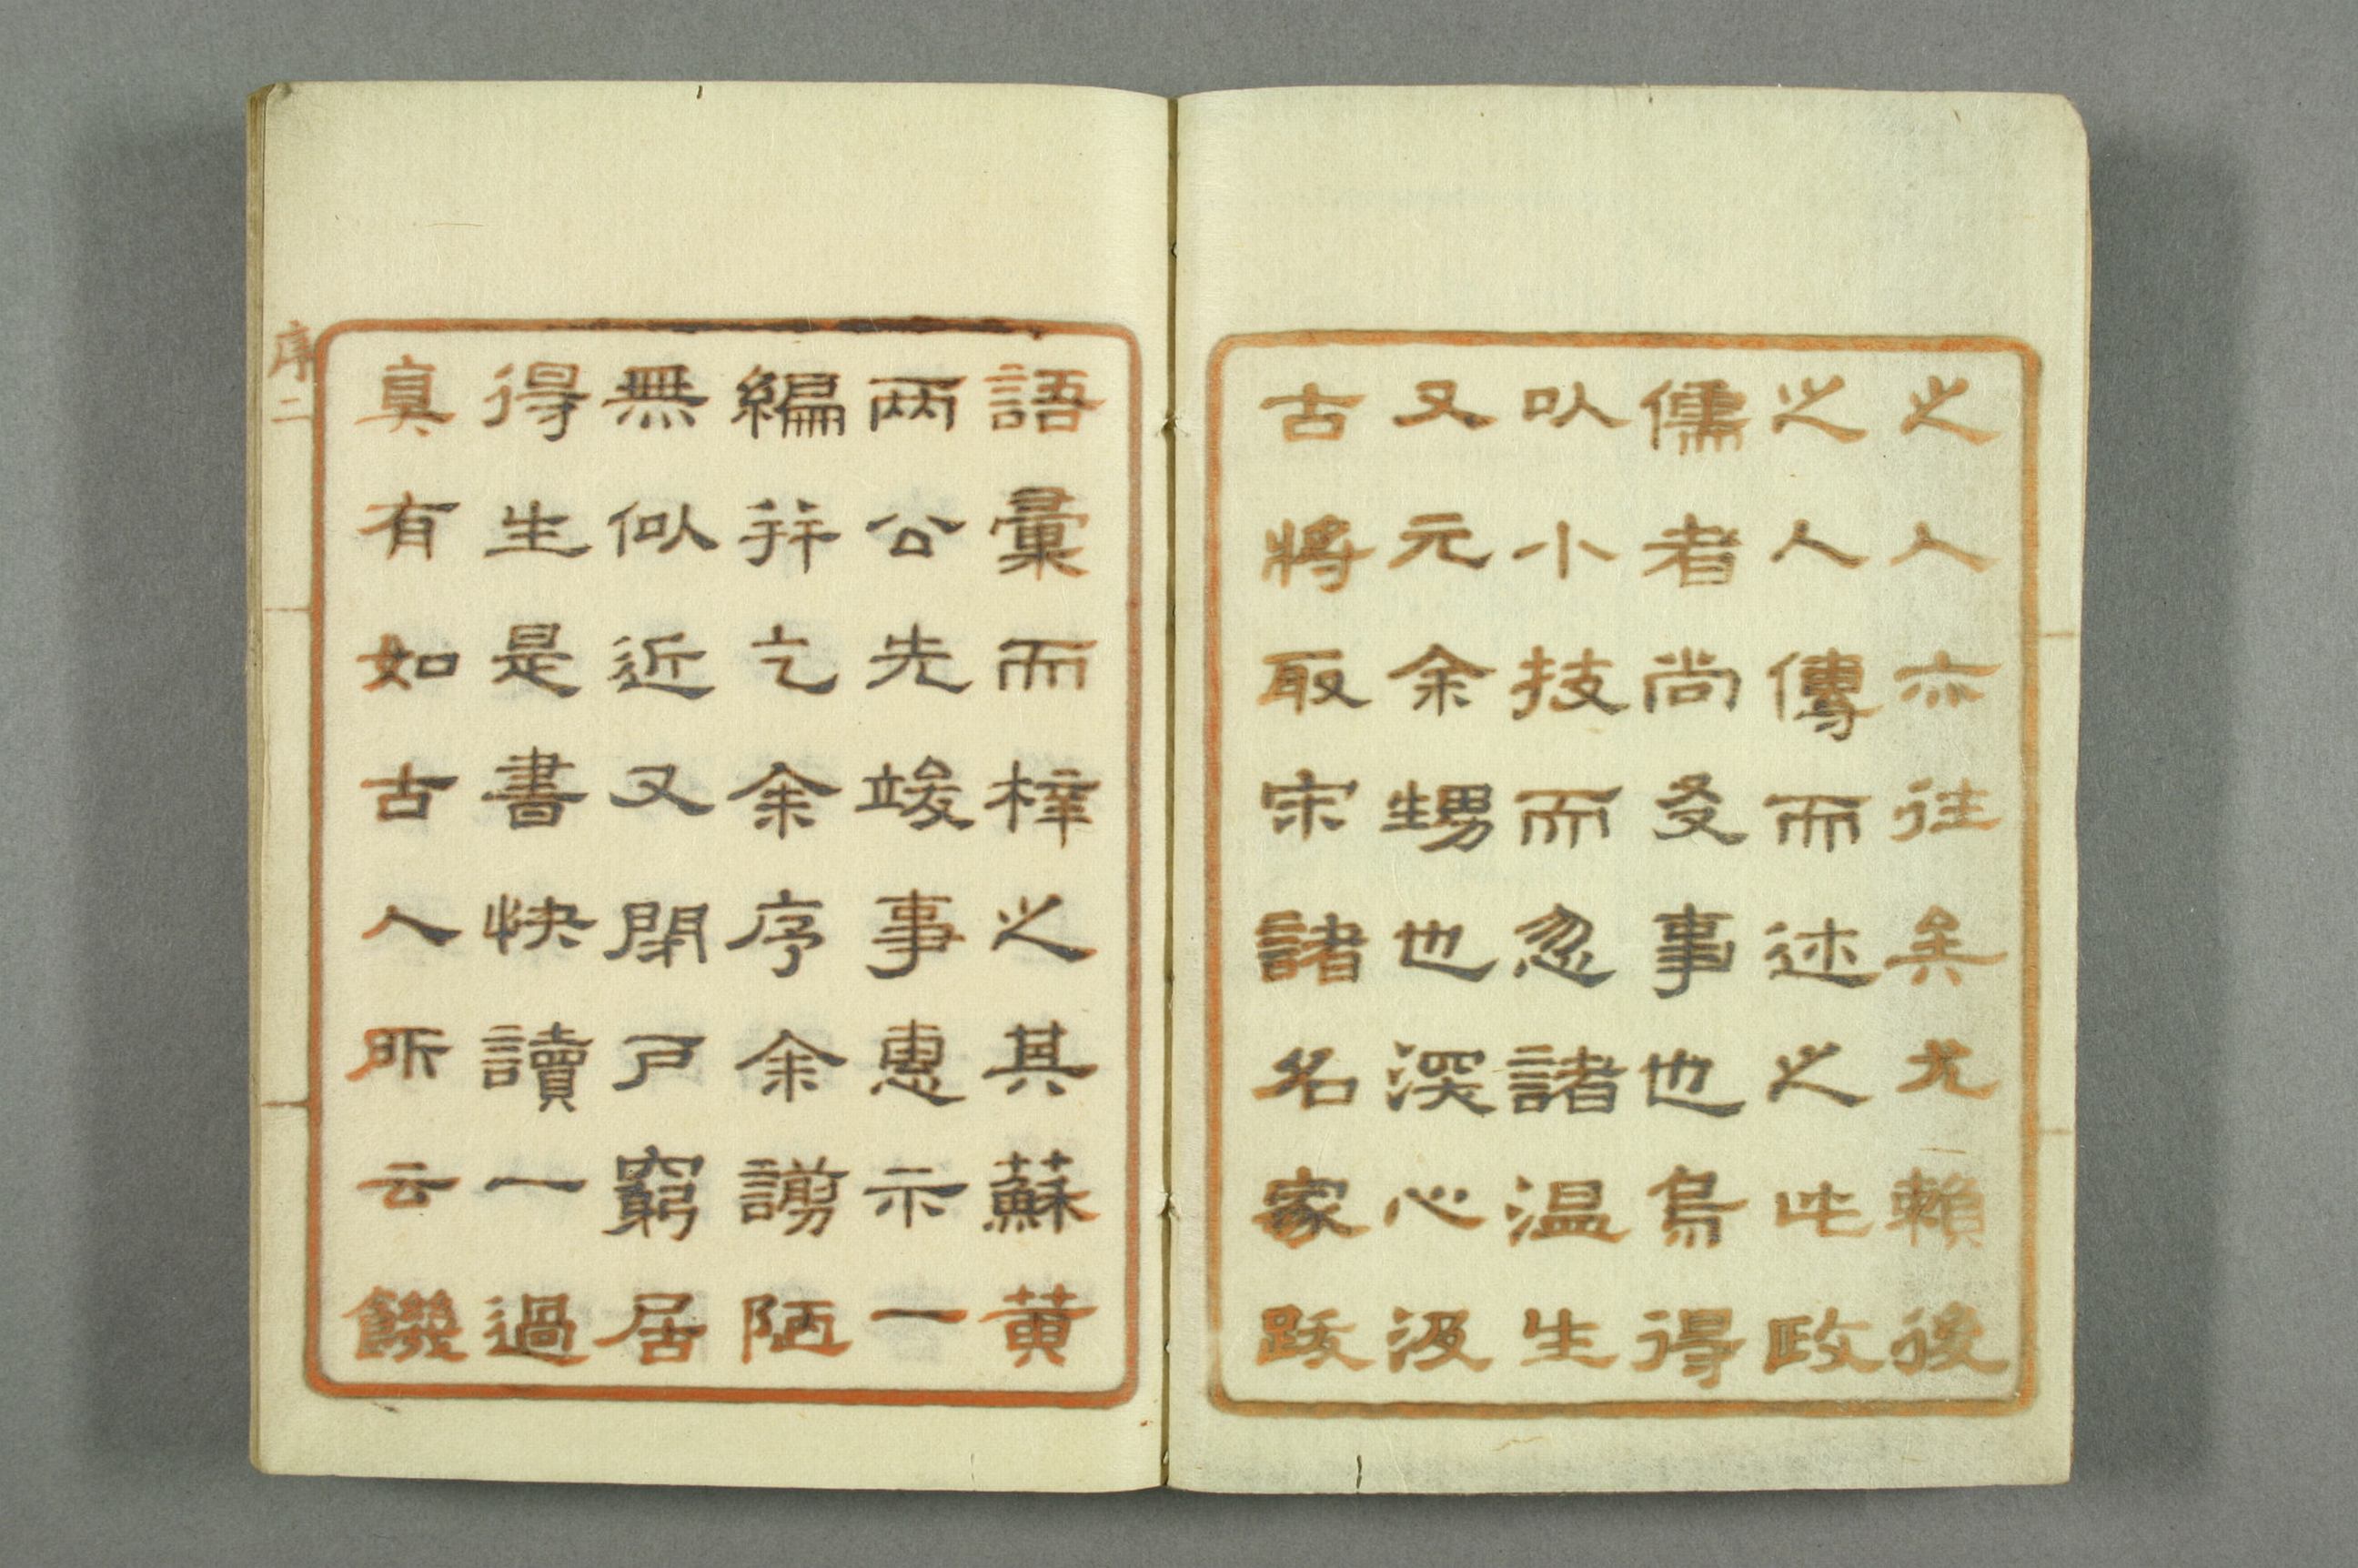 之人亦往矣尤賴後
之人傳而述之此政
儒者尚友事也烏得
以小技而忽諸温生
又元余甥也深心汲
古將取宋諸名家跋
語彙而梓之其蘇黄
兩公先竣事惠示一
編并乞余序余謭陋
無似近又閉戸窮居
得生是書快讀一過
真有如古人所云饑
序二